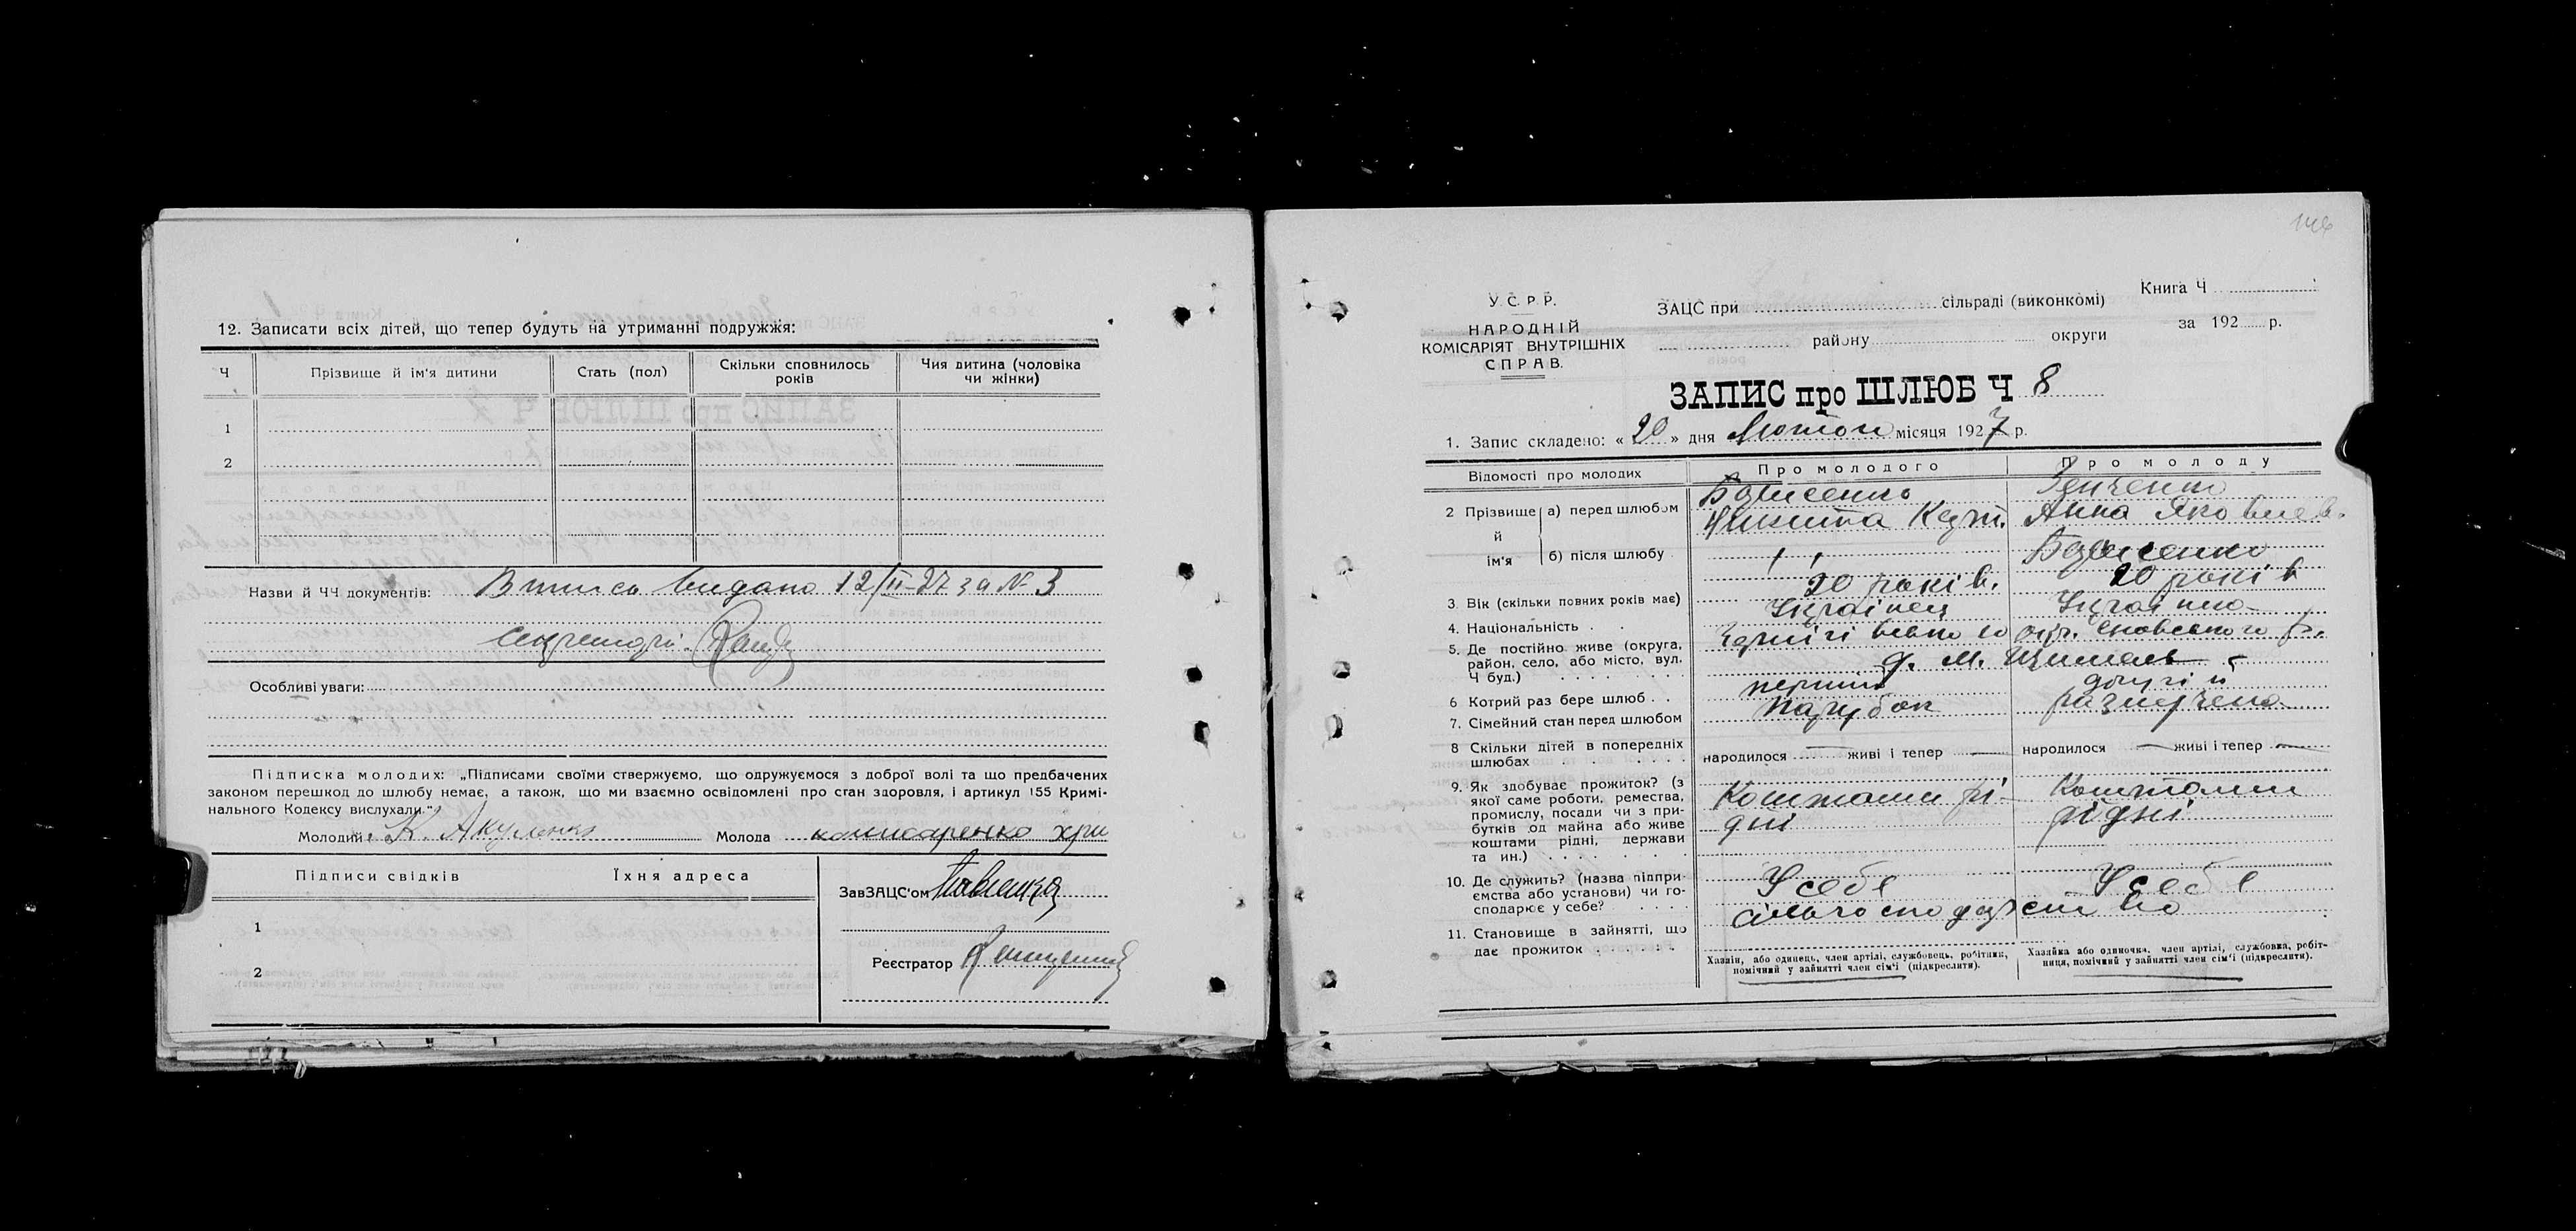 12. Записати всіх дітей, що тепер будуть на утриманні подружжя:
Ч
Прізвище й ім'я дитини
Стать (пол)
Скільки сповнилось
років
Чия дитина (чоловіка
чи жінки)
1
2
Назви й ЧЧ документів: Втись видано 12/II-27 за № 3
Секретарь
Особливі уваги:
Підписка молодих: „Підписами своїми ствержуємо, що одружуємося з доброї волі та що предбачених
законом перешкод до шлюбу немає, а також, що ми взаємно освідомлені про стан здоровля, і артикул 155 Кримі-
нального Кодексу вислухали."
Молодий: К. Акуленко Молода комисаренко хри
Підписи свідків
Їхня адреса
1
2
ЗавЗАЦС'ом
Реєстратор
146
У. С. Р. Р.
НАРОДНІЙ
КОМІСАРІЯТ ВНУТРІШНІХ
СПРАВ.
ЗАЦС при сільраді (виконкомі)
району округи
Книга Ч
за 192 р.
ЗАПИС про ШЛЮБ Ч 8
1. Запис складено: « 20 » дня Лютого місяця 1927 р.
Відомості про молодих
Про молодого
Про молоду
2 Прізвище й ім'я
а) перед шлюбом
Борисенко
Никита
Анна Яковлев.
б) після шлюбу
Борисенко
3. Вік (скільки повних років має)
20 років.
20 років
4. Національність
Українец
Українка
5. Де постійно живе (округа,
район, село, або місто, вул.
Ч буд.)
Чернігівського окр. Сновського р.
6 Котрий раз бере шлюб
перший
другий
7. Сімейний стан перед шлюбом
парубок
разлучена
8 Скільки дітей в попередніх
шлюбах
народилося — живі і тепер —
народилося — живі і тепер —
9. Як здобуває прожиток? (з
якої саме роботи, ремества,
промислу, посади чи з при-
бутків од майна або живе
коштами рідні, держави
та ин.)
Коштами рі-
дні
Коштами
рідні
10. Де служить? (назва підпри-
ємства або установи) чи го-
сподарює у себе?
У себе
У себе
сільгосподарство
11. Становище в зайнятті, що
дає прожиток
Хазяїн, або одинець, член артілі, службовець, робітник,
помічний у зайнятті член сім'ї (підкреслити).
Хазяйка або одиночка, член артілі, службовка, робіт-
ниця, помічний у зайнятті член сім'ї (підкреслити).